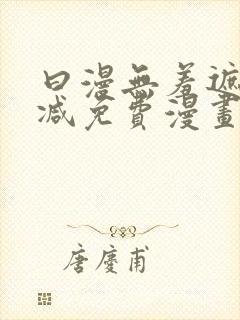 日漫無羞遮
减免費漫畫
唐慶甫